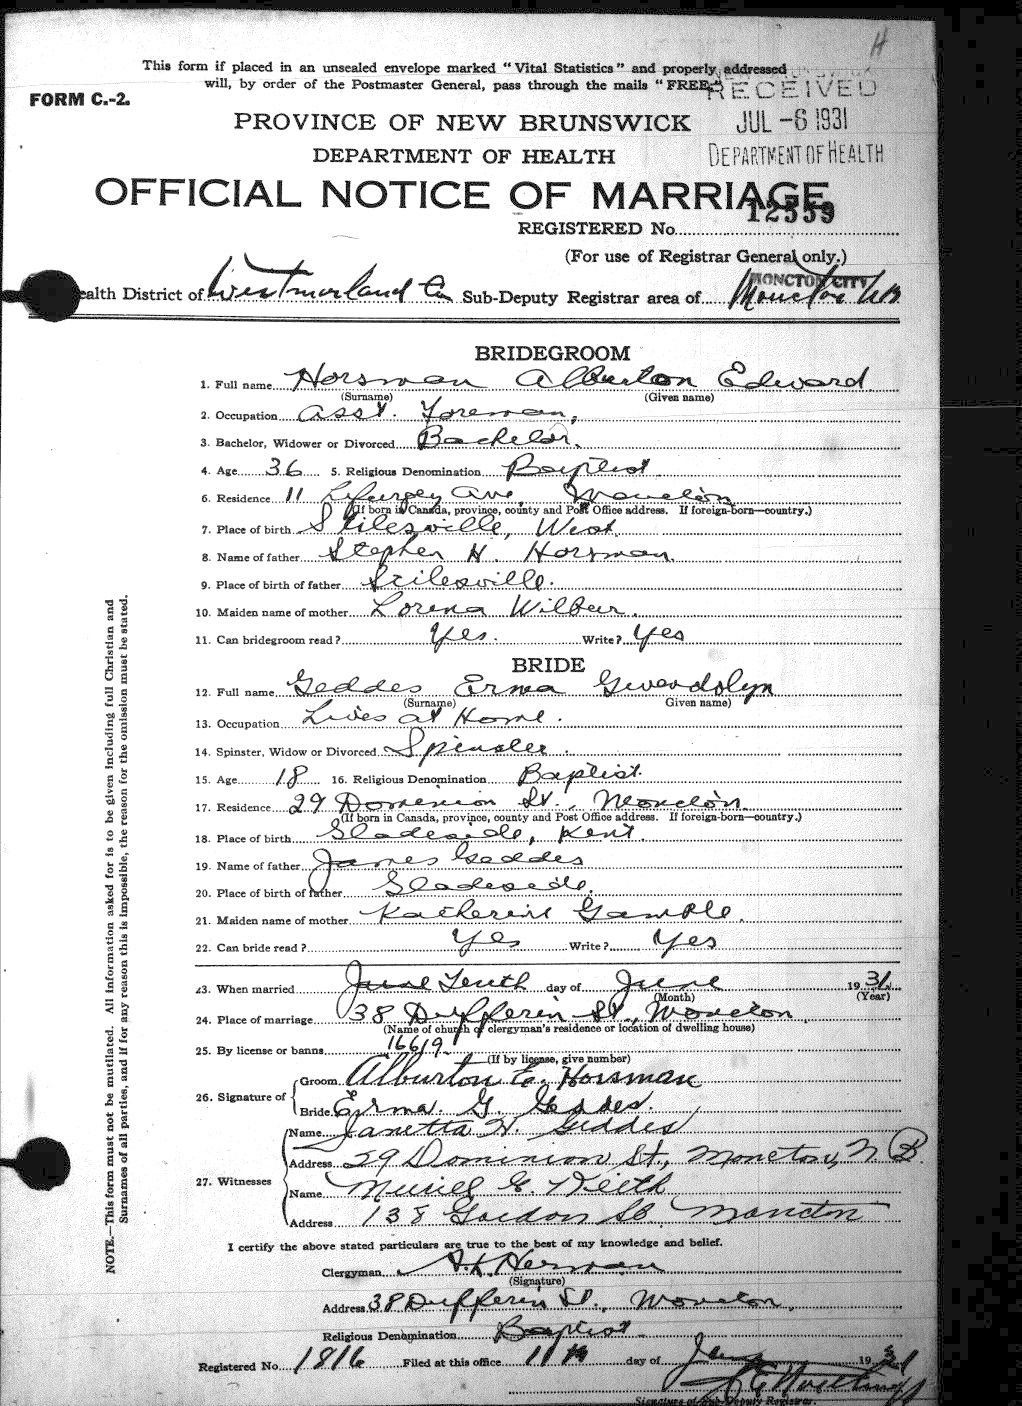 H
This form if placed in an unsealed envelope marked "Vital Statistics" and properly addressed
will, by order of the Postmaster General, pass through the mails "FREE."
FORM C.-2.
RECEIVED
JUL -6 1931
DEPARTMENT OF HEALTH
PROVINCE OF NEW BRUNSWICK
DEPARTMENT OF HEALTH
OFFICIAL NOTICE OF MARRIAGE
12559
REGISTERED No.
(For use of Registrar General only.)
MONCTON CITY
ealth District of Westmorland Co Sub-Deputy Registrar area of Moncton NB
BRIDEGROOM
1. Full name Horsman Alburton Edward
(Surname) (Given name)
2. Occupation Asst. Foreman,
3. Bachelor, Widower or Divorced Bachelor.
4. Age 36 5. Religious Denomination Baptist
6. Residence 11 Ave, Moncton
(If born in Canada, province, county and Post Office address. If foreign-born—country.)
7. Place of birth Stilesville, West.
8. Name of father Stephen H. Horsman.
9. Place of birth of father Stilesville.
10. Maiden name of mother Lorena Wilbur.
11. Can bridegroom read? Yes. Write? Yes
BRIDE
12. Full name Geddes Erma Gwendolyn
(Surname) Given name)
13. Occupation Lives at Home.
14. Spinster, Widow or Divorced Spinster.
15. Age 18 16. Religious Denomination Baptist.
17. Residence 29 Dominion St., Moncton.
(If born in Canada, province, county and Post Office address. If foreign-born—country.)
18. Place of birth Gladeside, Kent.
19. Name of father James Geddes
20. Place of birth of father Gladeside.
21. Maiden name of mother Katherine Gamble.
22. Can bride read? Yes Write? Yes
23. When married June Tenth day of June 1931.
(Month) (Year)
24. Place of marriage 38 Dufferin St., Moncton.
(Name of church or clergyman's residence or location of dwelling house)
25. By license or banns 16619.
(If by license, give number)
26. Signature of
Groom Alburton E. Horsman
Bride Erma. G. Geddes.
27. Witnesses
Name Janetta H. Geddes
Address 29 Dominion St, Moncton, N. B.
Name Muriel G. Keith
Address 138 Gordon St, Moncton
I certify the above stated particulars are true to the best of my knowledge and belief.
Clergyman Herman
(Signature)
Address 38 Dufferin St., Moncton.
Religious Denomination Baptist
Registered No. 1816 Filed at this office 11th day of 1931
Signature of Sub-Deputy Registrar.
NOTE.—This form must not be mutilated. All information asked for is to be given including full Christian and
Surnames of all parties, and if for any reason this is impossible, the reason for the omission must be stated.